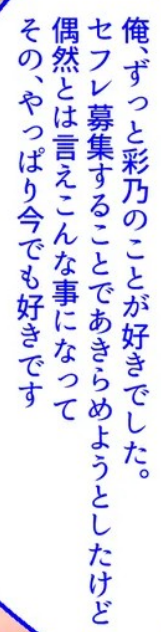 俺、ずっと彩乃のことが好きでした。
セフレ募集することであきらめようとしたけど
偶然とは言えこんな事になって
その、やっぱり今でも好きです